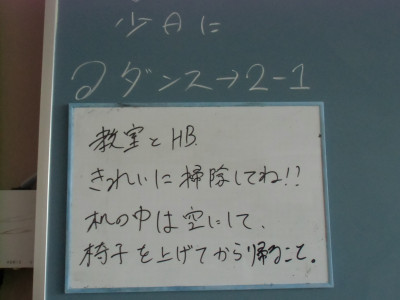 少Aに
②ダンス→2-1
教室とHB.
きれいに掃除してね!!
机の中は空にして、
椅子を上げてから帰ること。